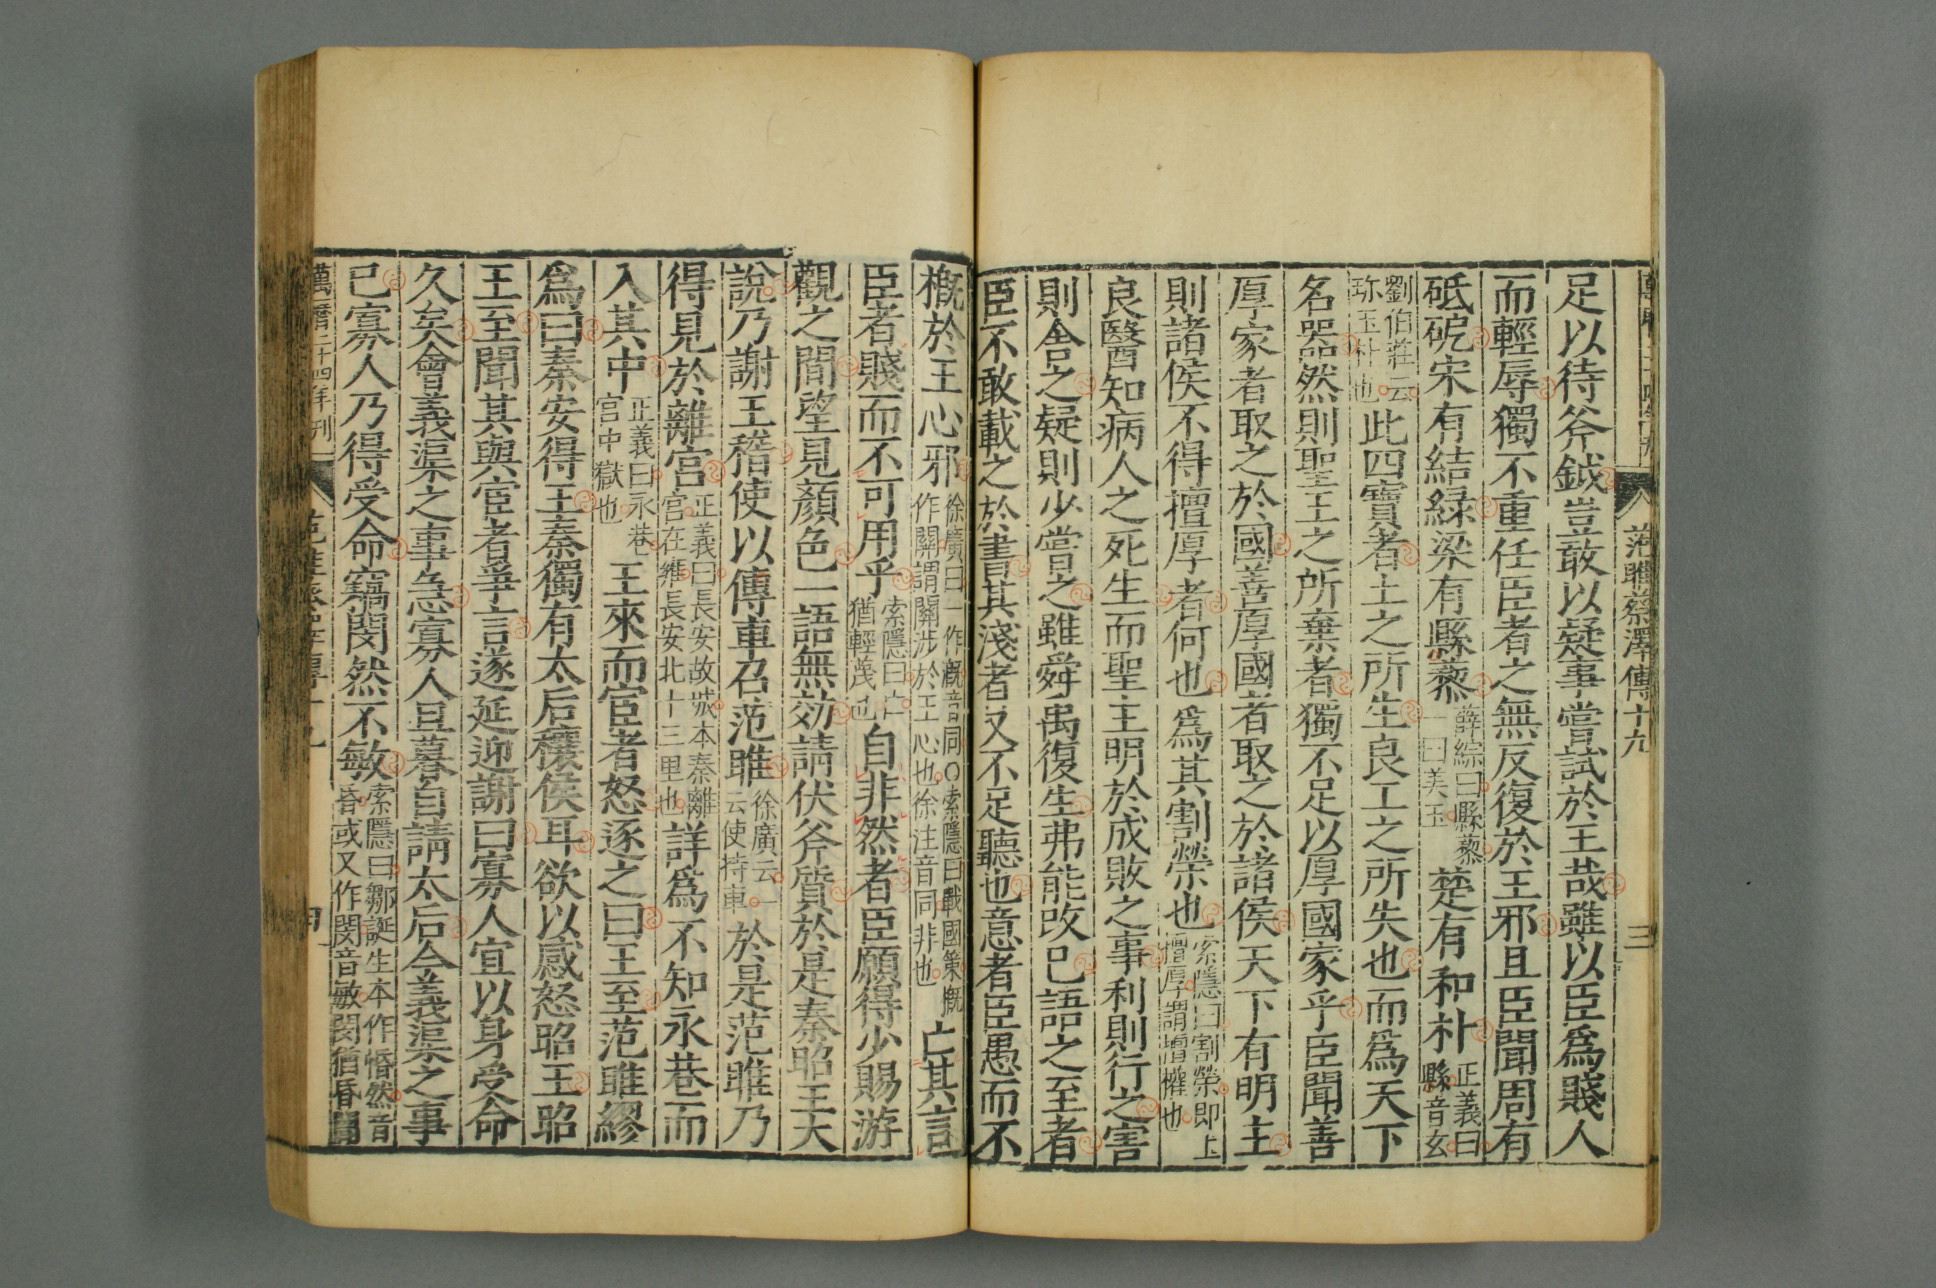 范睢蔡澤傳十九
三
足以待斧鉞豈敢以疑事嘗試於王哉雖以臣爲賤人
而輕辱獨不重任臣者之無反復於王邪且臣聞周有
砥砨宋有結緑梁有縣藜薛綜曰縣藜一曰美玉楚有和朴正義曰縣音玄
劉伯莊云珎玉朴也此四寶者土之所生良工之所失也而爲天下
名器然則聖王之所棄者獨不足以厚國家乎臣聞善
厚家者取之於國善厚國者取之於諸侯天下有明主
則諸侯不得擅厚者何也爲其割榮也索隱曰割榮即上擅厚謂擅權也
良醫知病人之死生而聖主明於成敗之事利則行之害
則舍之疑則少嘗之雖舜禹復生弗能改已語之至者
臣不敢載之於書其淺者又不足聽也意者臣愚而不
概於王心邪徐廣曰一作溉音同○索隱曰戰國策概作關謂關涉於王心也徐注音同非也亡其言
臣者賤而不可用乎索隱曰亡猶輕蔑也自非然者臣願得少賜游
觀之間望見顏色一語無効請伏斧質於是秦昭王大
說乃謝王稽使以傳車召范睢徐廣云一云使持車於是范睢乃
得見於離宫正義曰長安故城本秦離宫在雍長安北十三里也詳爲不知永巷而
入其中正義曰永巷宫中獄也王來而宦者怒逐之曰王至范睢繆
爲曰秦安得王秦獨有太后穰侯耳欲以感怒昭王昭
王至聞其與宦者爭言遂延迎謝曰寡人宜以身受命
久矣會義渠之事急寡人旦暮自請太后今義渠之事
已寡人乃得受命竊閔然不敏索隱曰鄒誕生本作惽然音昏或又作閔音敏閔猶昏
萬曆二十四年刊
范睢蔡澤傳十九